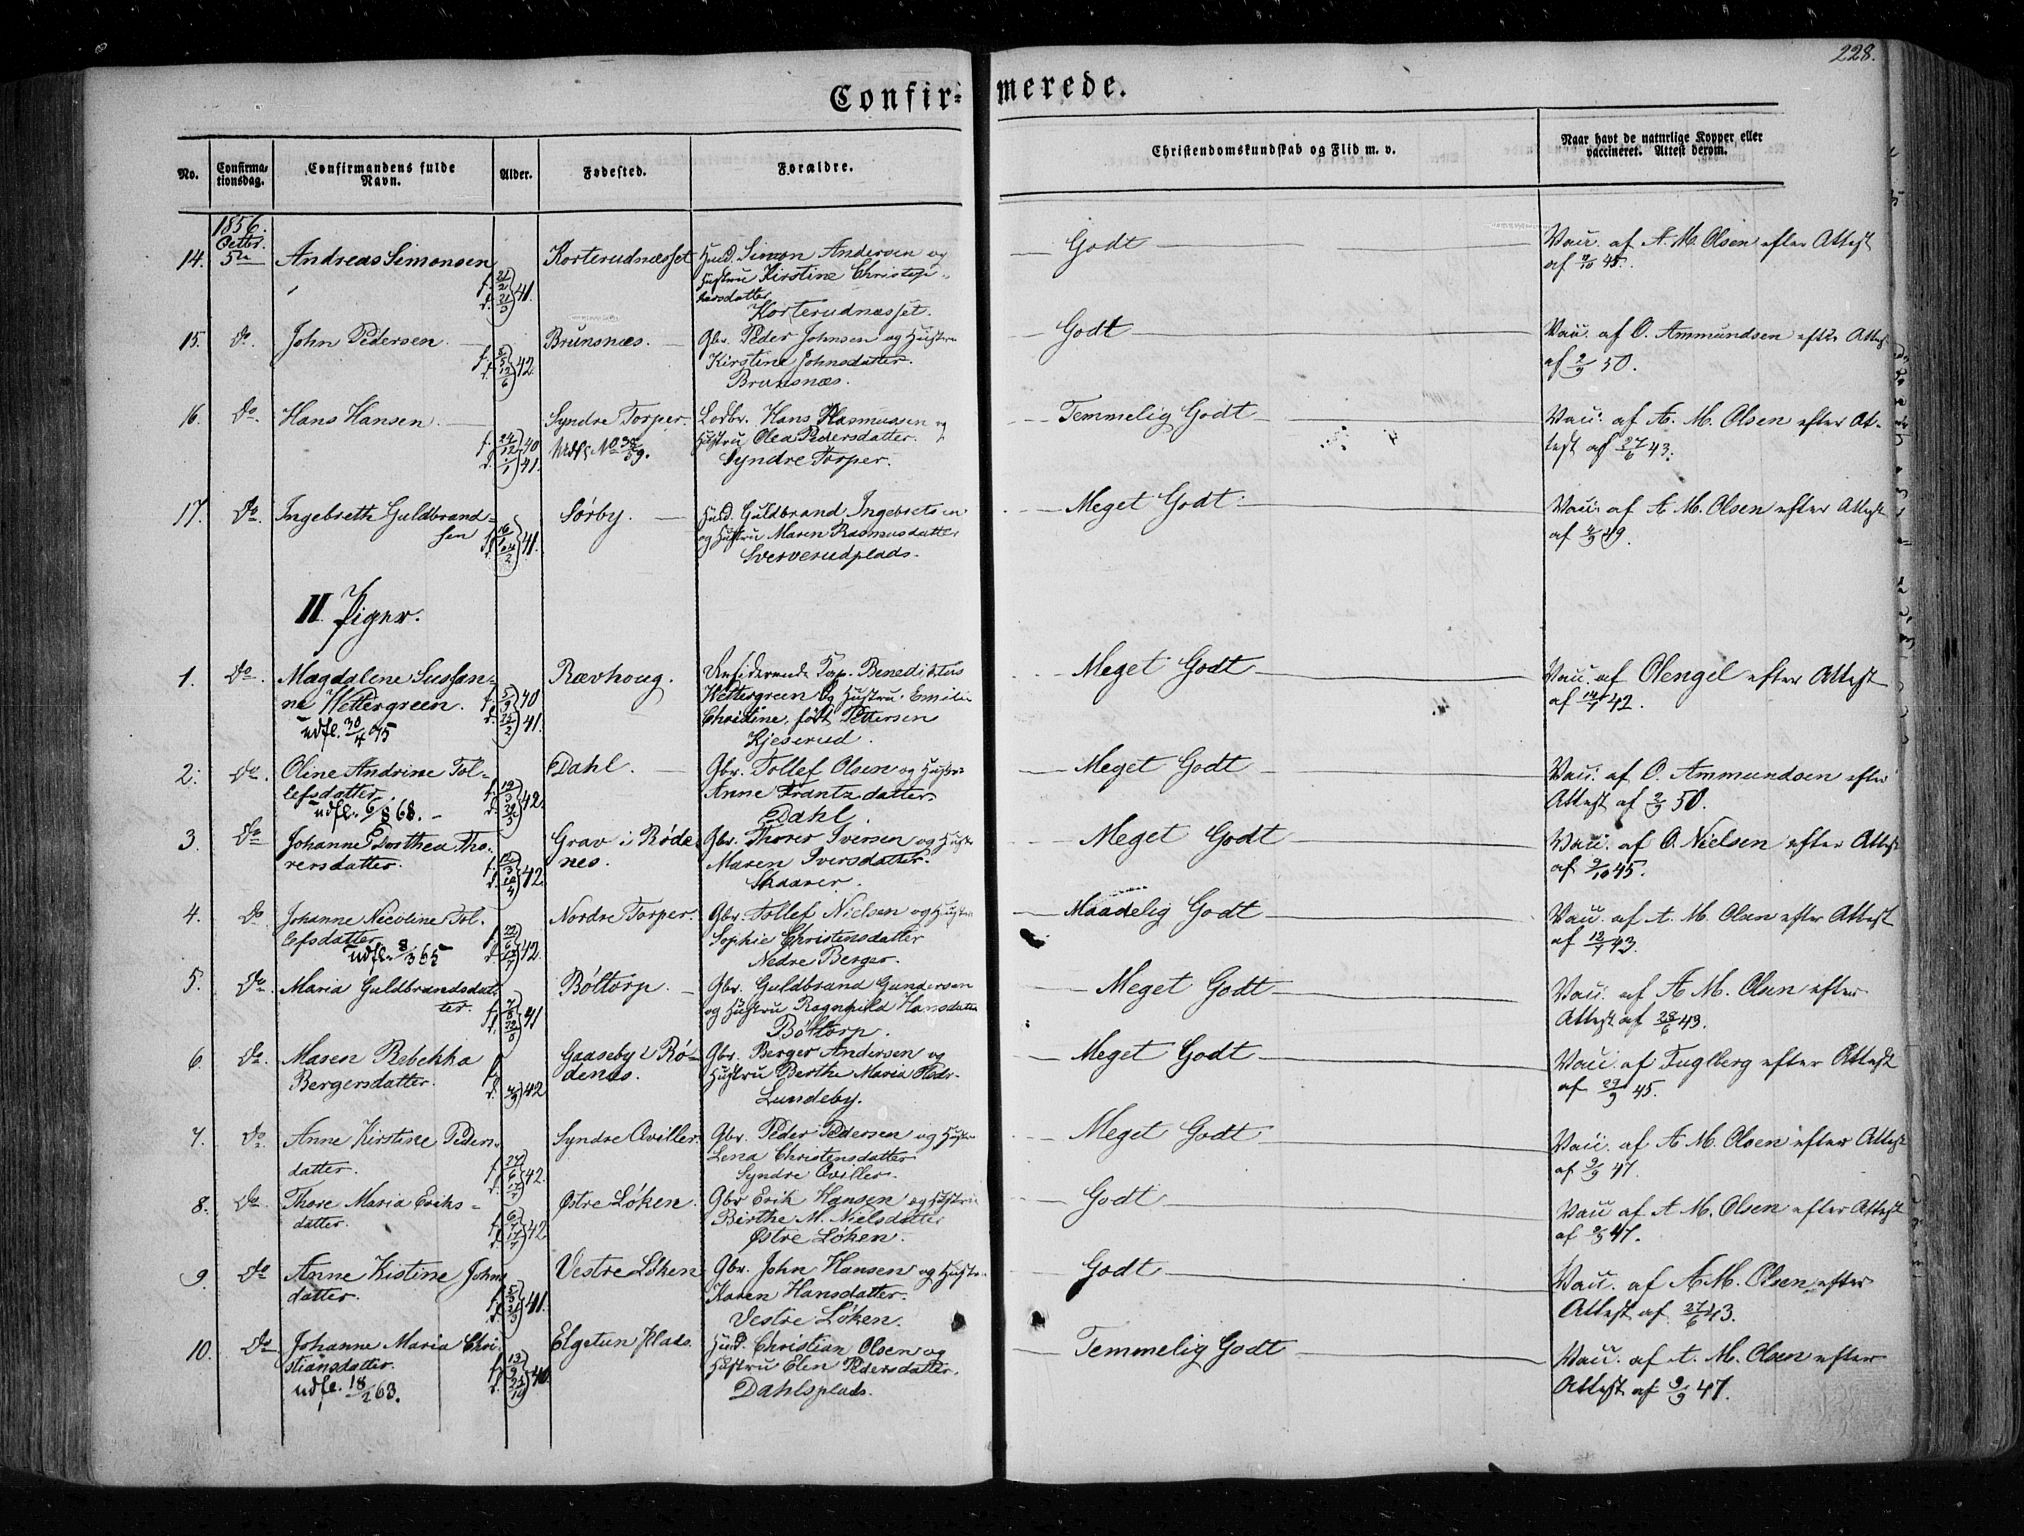 228.
Confir= merede.
No. Confirma-tionsdag. Confirmandens fulde Navn. Alder. Fødested. Forældre. Christendomskundskab og Flid m. v. Naar havt de naturlige Kopper eller vaccineret. Attest derom.
1856.
Octbr.
14. 5te Andreas Simonsen Korterudnæsset Husd. Simon Andersen og Godt Vacc. af A. M. Olsen efter Attest
f. 21/2 41. Hustru Kirstine Christop- af 9/10 45.
d. 21/3 hersdatter
Korterudnæsset.
15. do. John Pedersen Brunsnæs. Gbr. Peder Johnsen og Hustru Godt Vacc. af O. Ammundsen efter Attest
f. 5/5 42. Kirstine Johnsdatter. af 2/9 50.
d. 12/6 Brunsnæs.
16. do. Hans Hansen Syndre Torper. Lodbr. Hans Rasmussen og Temmelig Godt Vacc. af A. M. Olsen efter At-
f. 24/12 40 Udfl. No 38/59. Hustru Olea Pedersdatter. test af 27/6 43.
d. 1/1 41. Syndre Torper.
17. do. Ingebreth Guldbrand- Sørby. Husd. Guldbrand Ingebretsen Meget Godt Vacc. af A. M. Olsen efter Attest
sen f. 16/1 41. og Hustru Maren Rasmusdatter af 2/9 49.
d. 14/2 Sververudplads.
II. Piger.
1. do. Magdalene Susan- Rævhoug. Capt. Benediktus Meget Godt Vacc. af Olengel efter Attest
ne Wettergreen. f. 5/9 40 Wettergreen og Hustru Emilie af 14/7 42.
udfl. 30/4 75 d. 25/2 41. Christine, født Pettersen
Kjeserud.
2. do. Oline Andrine Tol- Dahl. Gbr. Tollef Olsen og Hustru Meget Godt Vacc. af O. Ammundsen efter
lefsdatter. f. 19/3 42. Anne Frantzdatter. Attest af 2/9 50.
udfl. 6/8 68. d. 29/5 Dahl.
3. do Johanne Dorthea Tho- Grav i Røde- Gbr. Thorer Iversen og Hustr Meget Godt Vacc. af O. Nielsen efter Attest
rersdatter. f. 12/3 42 nes. Maren Iversdatter. af 9/10 45.
d. 10/4 Skaarer.
4. do Johanne Nicoline Tol- Nordre Torper. Gbr. Tollef Nielsen og Hustru Maadelig Godt Vacc. af A. M. Olsen efter Attest
lefsdatter f. 22/6 42 Sophie Christensdatter af 12/7 43.
udfl. 8/3 65 d. 17/7 Nedre Berger.
5. do. Maria Guldbrandsdat- Bøltorp Gbr. Guldbrand Gundersen Meget Godt Vacc. af A. M. Olsen efter
ter. f. 7/8 41 og Hustru Ragnhild Hansdatter Attest af 28/6 43.
d. 22/8 Bøltorp.
6. do. Maren Rebekka Gaaseby i Rø- Gbr. Berger Andersen og Meget Godt Vacc. af Fuglberg efter Attest
Bergersdatter. f. denes. Hustru Berthe Maria Pedr. af 29/9 45.
d. 4/9 42 Lundeby.
7. do. Anne Kirstine Peders- Syndre Qviller. Gbr. Peder Pedersen og Hustru Meget Godt Vacc. af A. M. Olsen efter Attest
datter. f. 24/6 42. Lena Christensdatter af 9/9 47.
d. 17/7 Syndre Qviller.
8. do. Thore Maria Eriks- Østre Løken. Gbr Erik Hansen og Hustru Godt Vacc af A. M. Olsen efter Attest
datter. f. 6/7 42 Birthe M. Nielsdatter af 9/9 47.
d. 17/7 Østre Løken.
9. do Anne Kistine Johns Vestre Løken Gbr. John Hansen og Hustru Godt Vacc. af A. M. Olsen efter
datter. f. 5/3 41. Karen Hansdatter. Attest af 27/6 43.
d. 21/3 Vestre Løken.
10. do Johanne Maria Chri- Elgetun plads. Husd. Christian Olsen og Temmelig Godt Vacc. af A. M. Olsen efter
stiansdatter. f. 13/9 40. Hustru Elen Pedersdatter. Attest af 9/9 47.
udfl. 18/2 63. d. 25/10 Dahlsplads.